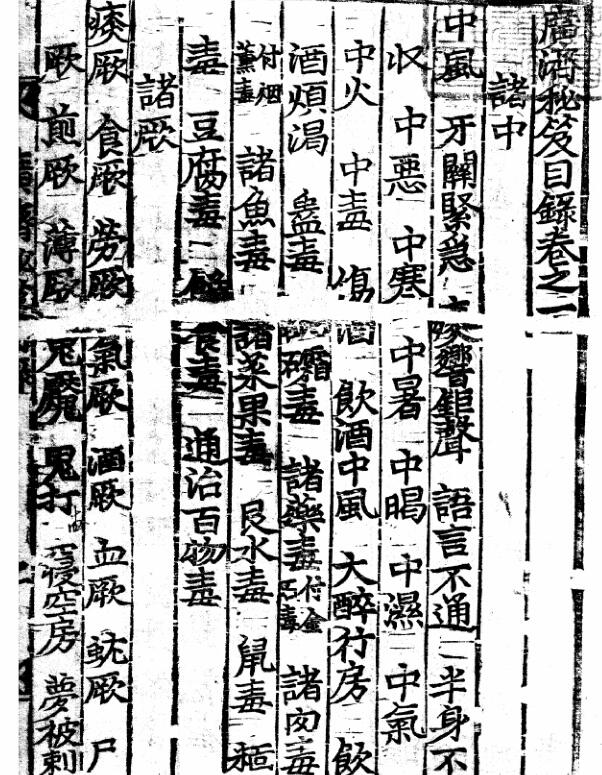 廣濟秘笈目錄卷之一
諸中
中風 牙關緊急 痰響鉅聲 語言不通 半身不
收 中惡 中寒 中暑 中暍 中濕 中氣
中火 中毒 傷酒 飮酒中風 大醉行房 飮
酒煩渴 蠱毒 砒礵毒 諸藥毒 付金石毒 諸肉毒
付烟薰毒 諸魚毒 諸菜果毒 艮水毒 鼠毒
毒 豆腐毒 食毒 通治百物毒
諸厥
痰厥 食厥 勞厥 氣厥 酒厥 血厥 蚘厥 尸
厥 煎厥 薄厥 鬼魘 鬼打 寢空房 夢被刺